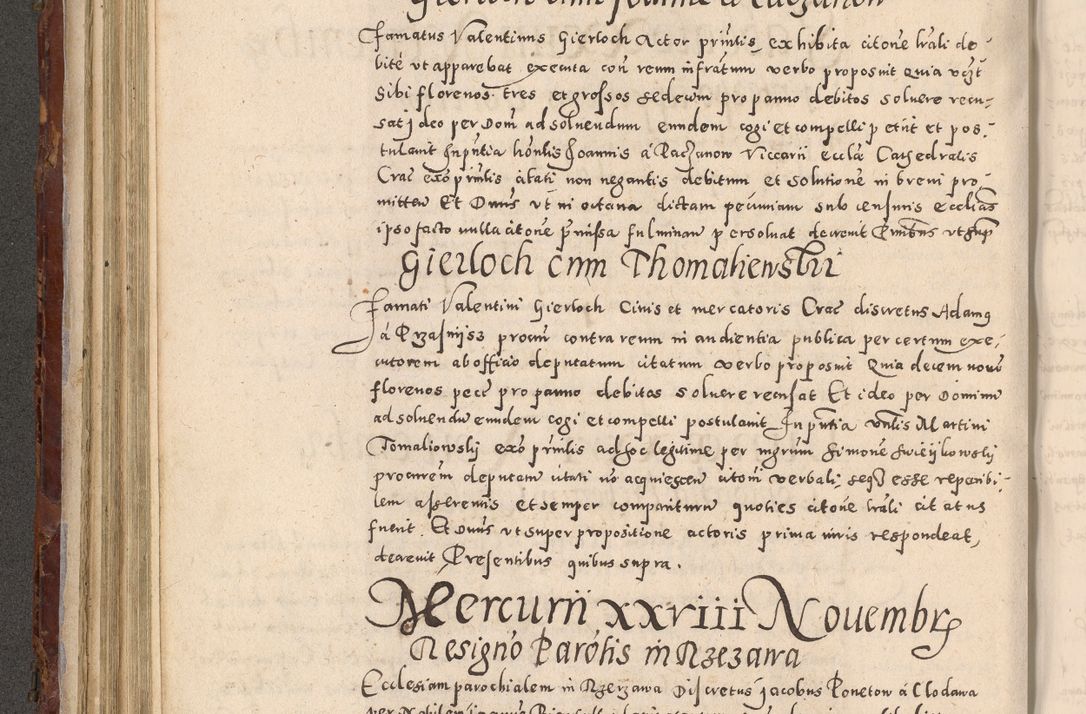 Gierloch cum Joanne a Raczanow
Famatus Valentinus Gierloch Actor prīntis exhibita citone lrāli de-
bite vt apparebat executa con reum infratum verbo proposuit Quia vczt
Sibi florenos tres et grossos sedecim pro panno debitos soluere recu-
sat Ideo per Dom ad soluendum eundem cogi et compelli petiit et pos-
tulauit Inpntia honlis Joannis á Raczanow Viccarii ecclae Cathedralis
Crac exo prīntis citati non negantis debitum et solutione in breui pro-
mitten Et Dnus vt in octaua dictam pecuniam sub censuris ecclias
ipso facto nulla citone pmissa fulminan persoluat decreuit Pntibus vt supr
Gierloch cum Thomaliewskii
Famati Valentini Gierloch Ciuis et mercatoris Crac discretus Adamus
á Przasnijsz procur contra reum in audientia publica per certum exe-
cutorem ab officio deputatum citatum verbo proposuit Quia decem nouem
florenos pecc pro panno debitos soluere recusat Et ideo per Dominum
ad soluendu eundem cogi et compelli postulauit In pntia Martini
Tomaliowskij exo prīntis ad hoc legitime per mgrum Simone
procurem deputatum citati no acquiescen citoni verbali seqz esse reperibi-
lem asserentis et semper compariturum quoties citone lrāli citatus
fuerit Et Dnus vt super propositione actoris prima iuris respondeat,
decreuit Presentibus quibus supra.
Mercurii xxviii Nouembrs
Resigno Parotis in Rzezawa
Ecclesiam parochialem in Rzezawa Discretus Jacobus Ponetow á Clodawa